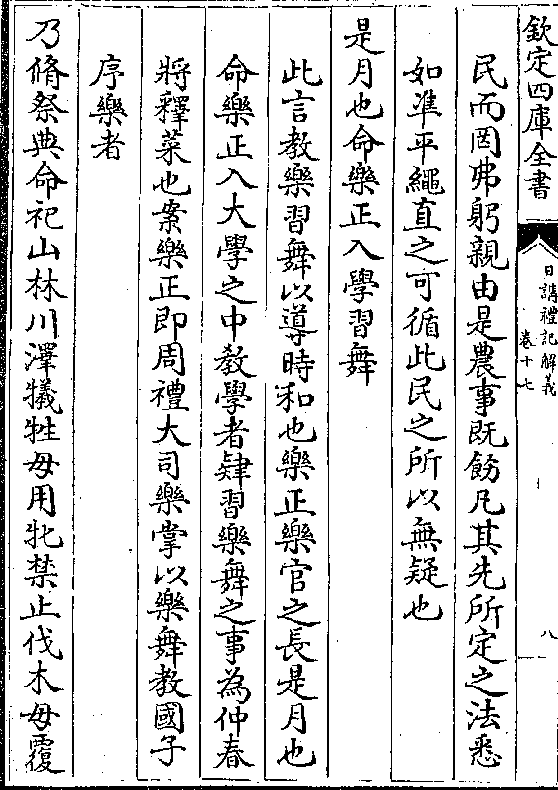 欽定四庫全書
日講禮記解義
卷十七
八
民而罔弗躬親由是農事既飭凡其先所定之法悉
如準平繩直之可循此民之所以無疑也
是月也命樂正入學習舞
此言教樂習舞以導時和也樂正樂官之長是月也
命樂正入大學之中教學者肄習樂舞之事為仲春
將釋菜也案樂正即周禮大司樂掌以樂舞教國子
序樂者
乃脩祭典命祀山林川澤犧牲毋用牝禁止伐木毋覆